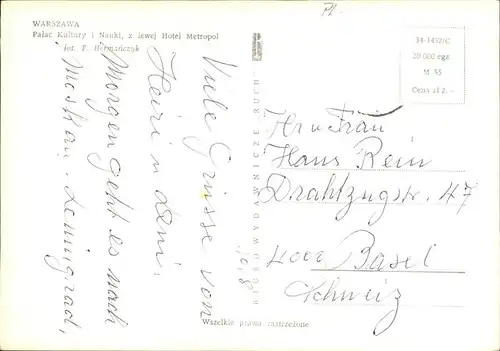 WARSZAWA
Pałac Kultury i Nauki, z lewej Hotel Metropol
fot. T. Hermańczyk
34-1452/C
20 000 egz
M 55
Cena zł 2.-
Viele Grüsse von
Heiri u Leni.
Morgen geht es nach
Moskau. Leningrad,
BIURO WYDAWNICZE RUCH
Hr u Frau
Hans Rein
Drahtzugstr. 47
4000 Basel
Schweiz
Wszelkie prawa zastrzeżone